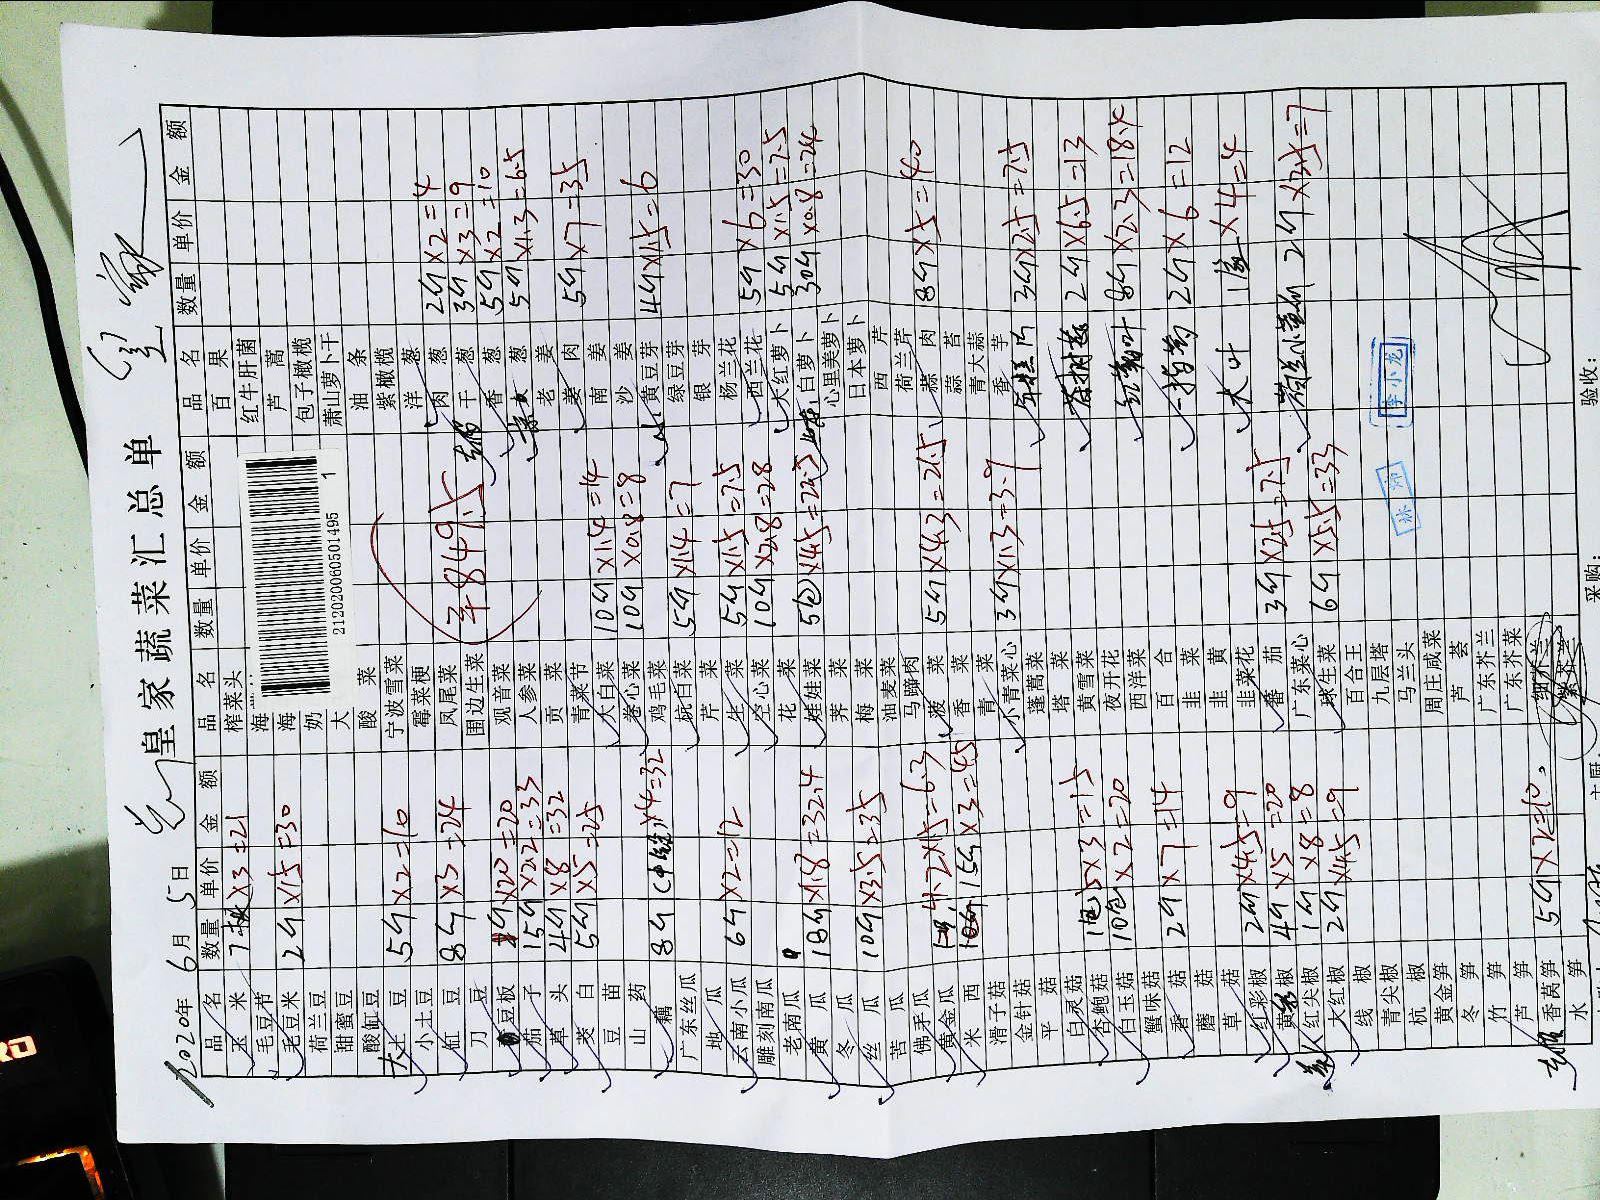 皇家蔬菜汇总单
2020年6月5日
品名 数量 单价 金额
玉米 7 ×3=21
毛豆节
毛豆米 2斤×15=30
荷兰豆
甜蜜豆
酸缸豆
大土豆 5斤×2=10
小土豆
缸豆 8斤×3=24
刀豆
豆板 1斤×20=20
茄子 15斤×2.2=33
草头 4斤×8=32
茭白 5斤×5=25
豆苗
山药
藕 8斤 ×4=32
广东丝瓜
地瓜
云南小瓜 6斤×2=12
雕刻南瓜
老南瓜
黄瓜 18斤×1.8=32.4
冬瓜
丝瓜 10斤×3.5=35
苦瓜
佛手瓜
黄金瓜 4.2×1.5=6.3
米西 15斤×3=45
滑子菇
金针菇
平菇
白灵菇
杏鲍菇 5×3=15
白玉菇 10包×2=20
蟹味菇
香菇 2斤×7=14
蘑菇
草菇
红彩椒 2斤×4.5=9
黄彩椒 4斤×5=20
红尖椒 1斤×8=8
大红椒 2斤×4.5=9
线椒
青尖椒
杭椒
黄金笋
冬笋
竹笋
芦笋
香莴笋 5斤×2=10
水笋
品名 数量 单价 金额
榨菜头
海
海
奶
大
酸菜
宁波雪菜
霉菜梗
凤尾菜
围边生菜
观音菜
人参菜
贡菜
青菜节
大白菜 10斤×1.4=14
卷心菜 10斤×0.8=8
鸡毛菜
杭白菜 5斤×1.4=7
芹菜
生菜 5斤×1.5=7.5
空心菜 10斤×2.8=28
花菜
娃娃菜 5包×4.5=22.5
荠菜
梅菜
油麦菜
马蹄肉
菠菜 5斤×4.3=21.5
香菜
青菜
小青菜心 3斤×1.3=3.9
蓬蒿菜
塔菜
黄雪菜
夜开花
西洋菜
百合
韭菜
韭黄
韭菜花
蕃茄 3斤×2.5=7.5
广东菜心
球生菜 6斤×5.5=33
百合王
九层塔
马兰头
周庄咸菜
芦荟
广东芥兰
广东芥菜
细芥兰
紫芥兰
2120200605014​95 1
=849.5
品名 数量 单价 金额
百果
红牛肝菌
芦蒿
包子橄榄
萧山萝卜干
油条
紫橄榄
洋葱 2斤×2=4
肉葱 3斤×3=9
干葱 5斤×2=10
香葱 5斤×1.3=6.5
老姜
姜肉 5斤×7=35
南姜
沙姜
黄豆芽 4斤×1.5=6
绿豆芽
银芽
杨兰花
西兰花 5斤×6=30
大红萝卜 5斤×1.5=7.5
白萝卜 30斤×0.8=24
心里美萝卜
日本萝卜
西芹
荷兰芹
蒜肉 8斤×5=40
蒜苔
青大蒜
香芋
年糕片 3斤×2.5=7.5
茶树菇 2斤×6.5=13
8斤×2.3=18.4
2斤×6=12
大叶 ×4=4
2斤×3.5=7
李小龙
验收:
采购:
主厨: